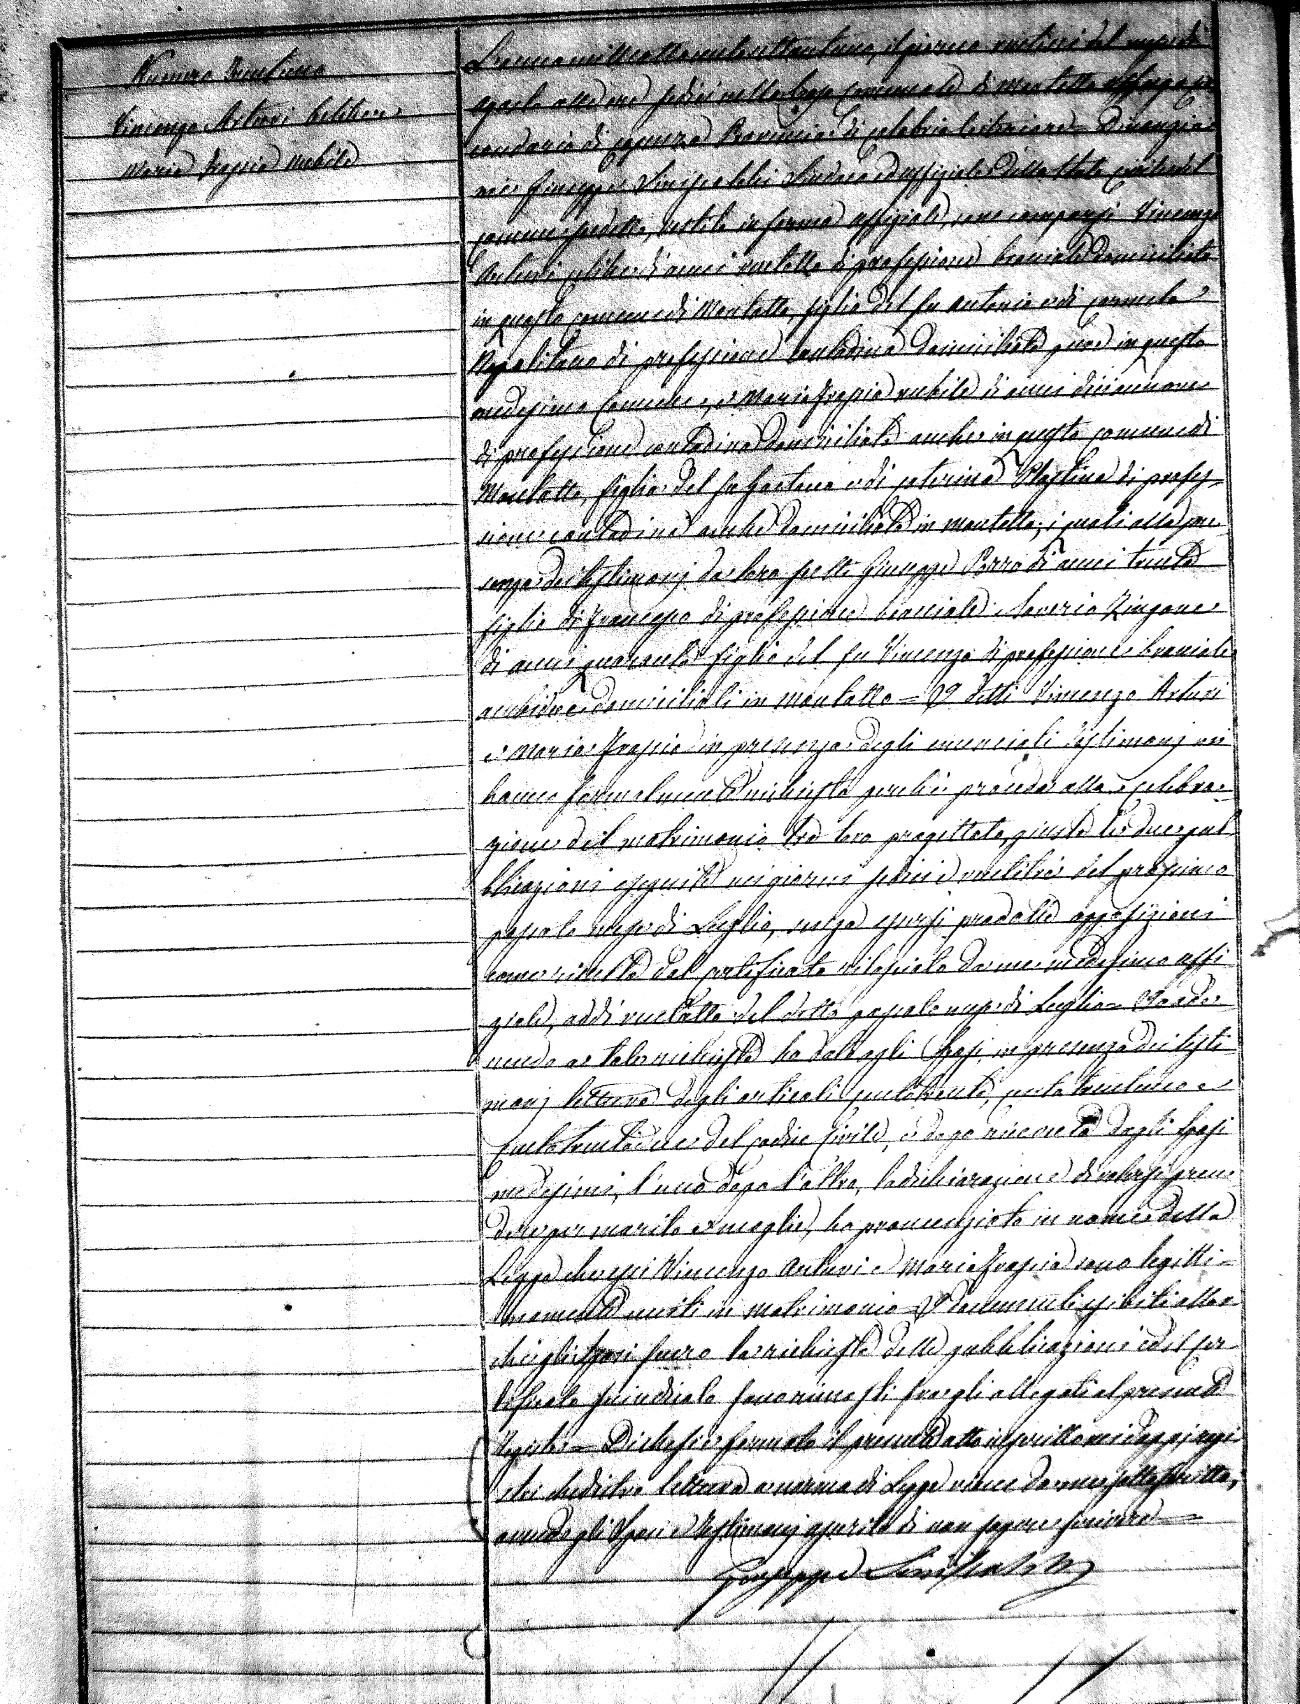 Numero trentuno
Vincenzo Arturi celibe e
Maria Grazia nubile
L'anno milleottocentottantuno, il giorno ventuni del mese di
Agosto alle ore sedici nella Casa Comunale di Montalto
Provincia di Calabria Citeriore = Dinanzi a
me Giuseppe Sindaco ed uffiziale dello Stato Civile del
comune suddetto, vestito in forma uffiziale, sono comparsi Vincenzo
Arturi celibe di anni ventotto di professione bracciale domiciliato
in questo comune di Montalto, figlio del fu Antonio e di Carmela
Napolitano di professione contadina domiciliata pure in questo
medesimo Comune, e Maria Grazia nubile di anni diciannove
di professione contadina domiciliata anche in questo comune di
Montalto, figlia del fu Gaetano e di Caterina di profes=
sione contadina anche domiciliata in Montalto; i quali alla pre
senza dei testimonj da loro scelti Giuseppe Porro di anni trenta
figlio di Francesco di professione bracciale e Saverio Zingone
di anni quaranta figlio del fu Vincenzo di professione bracciale
ambidue domiciliati in Montalto = I detti Vincenzo Arturi
e Maria Grazia in presenza degli enunciati testimonj mi
hanno formalmente richiesto perchè proceda alla celebra=
zione del matrimonio tra loro progettato, giusta le due pub
blicazioni eseguite nei giorni del prossimo
passato mese di Luglio, senza essersi prodotte opposizioni
come risulta dal certificato rilasciato da me medesimo uffi
ziale, addì ventotto del detto passato mese di Luglio =
nendo a tale richiesta ho dato agli Sposi in presenza dei testi
monj lettura degli articoli centotrenta, centotrentuno e
centotrentadue del Codice Civile, e dopo ricevuta dagli sposi
medesimi, l'uno dopo l'altro, la dichiarazione di volersi pren
dere per marito e moglie, ho pronunziato in nome della
Legge che essi Vincenzo Arturi e Maria Grazia sono legitti=
mamente uniti in matrimonio = I documenti esibiti oltre
che gli sposi fecero la richiesta delle pubblicazioni ed il cer
tificato succitato sono rimasti fra gli allegati al presente
registro = Di che si è formato il presente atto inscritto nei doppi regi
stri che dietro lettura a norma di Legge viene da me sottoscritto,
avendo gli Sposi e testimonj asserito di non sapere scrivere =
Giuseppe